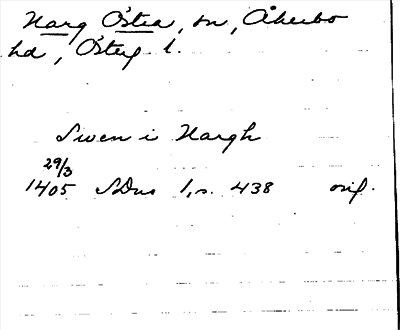 Narg Östra, sn, Åkerbo
hd, Österg l.
Swen i Nargh
29/3
1405 SDns 1, s. 438 orig.